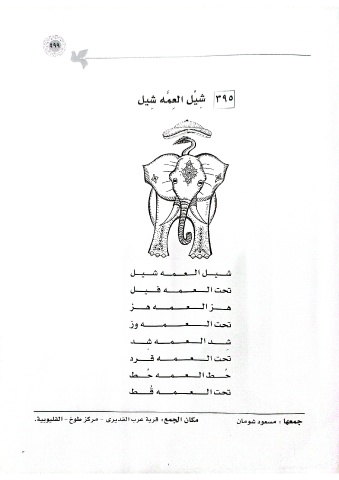 ٤٩٩
٣٩٥ شِيْل العِمَّه شِيل
شيل العمه شيل
تحت العمه فيل
هز العمه هز
تحت العمه وز
شد العمه شِد
تحت العمه قرد
حُط العمه حُط
تحت العمه قُط
جمعها: مسعود شومان مكان الجمع: قرية عرب الغديرى - مركز طوخ - القليوبية.